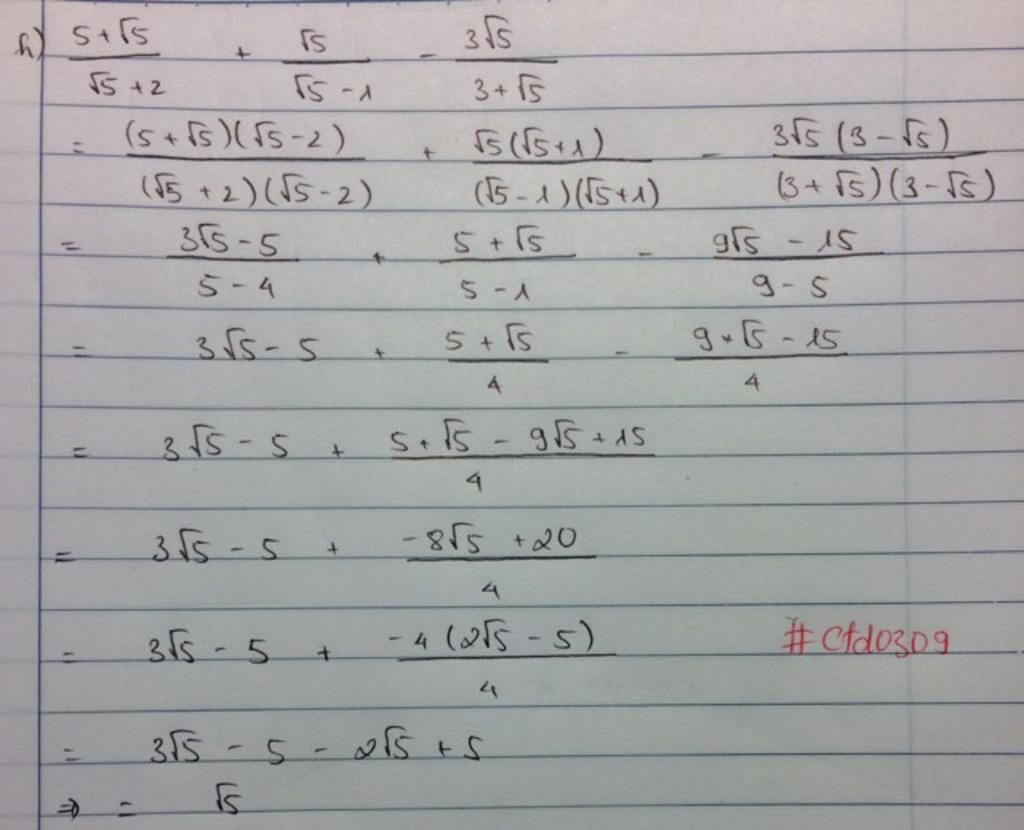 h) (5+√5)/(√5+2) + √5/(√5-1) - 3√5/(3+√5)
= (5+√5)(√5-2)/(√5+2)(√5-2) + √5(√5+1)/(√5-1)(√5+1) - 3√5(3-√5)/(3+√5)(3-√5)
= (3√5-5)/(5-4) + (5+√5)/(5-1) - (9√5-15)/(9-5)
= 3√5-5 + (5+√5)/4 - (9*√5-15)/4
= 3√5-5 + (5+√5-9√5+15)/4
= 3√5-5 + (-8√5+20)/4
= 3√5-5 + -4(2√5-5)/4 #Ctd0309
= 3√5-5-2√5+5
⇒ = √5